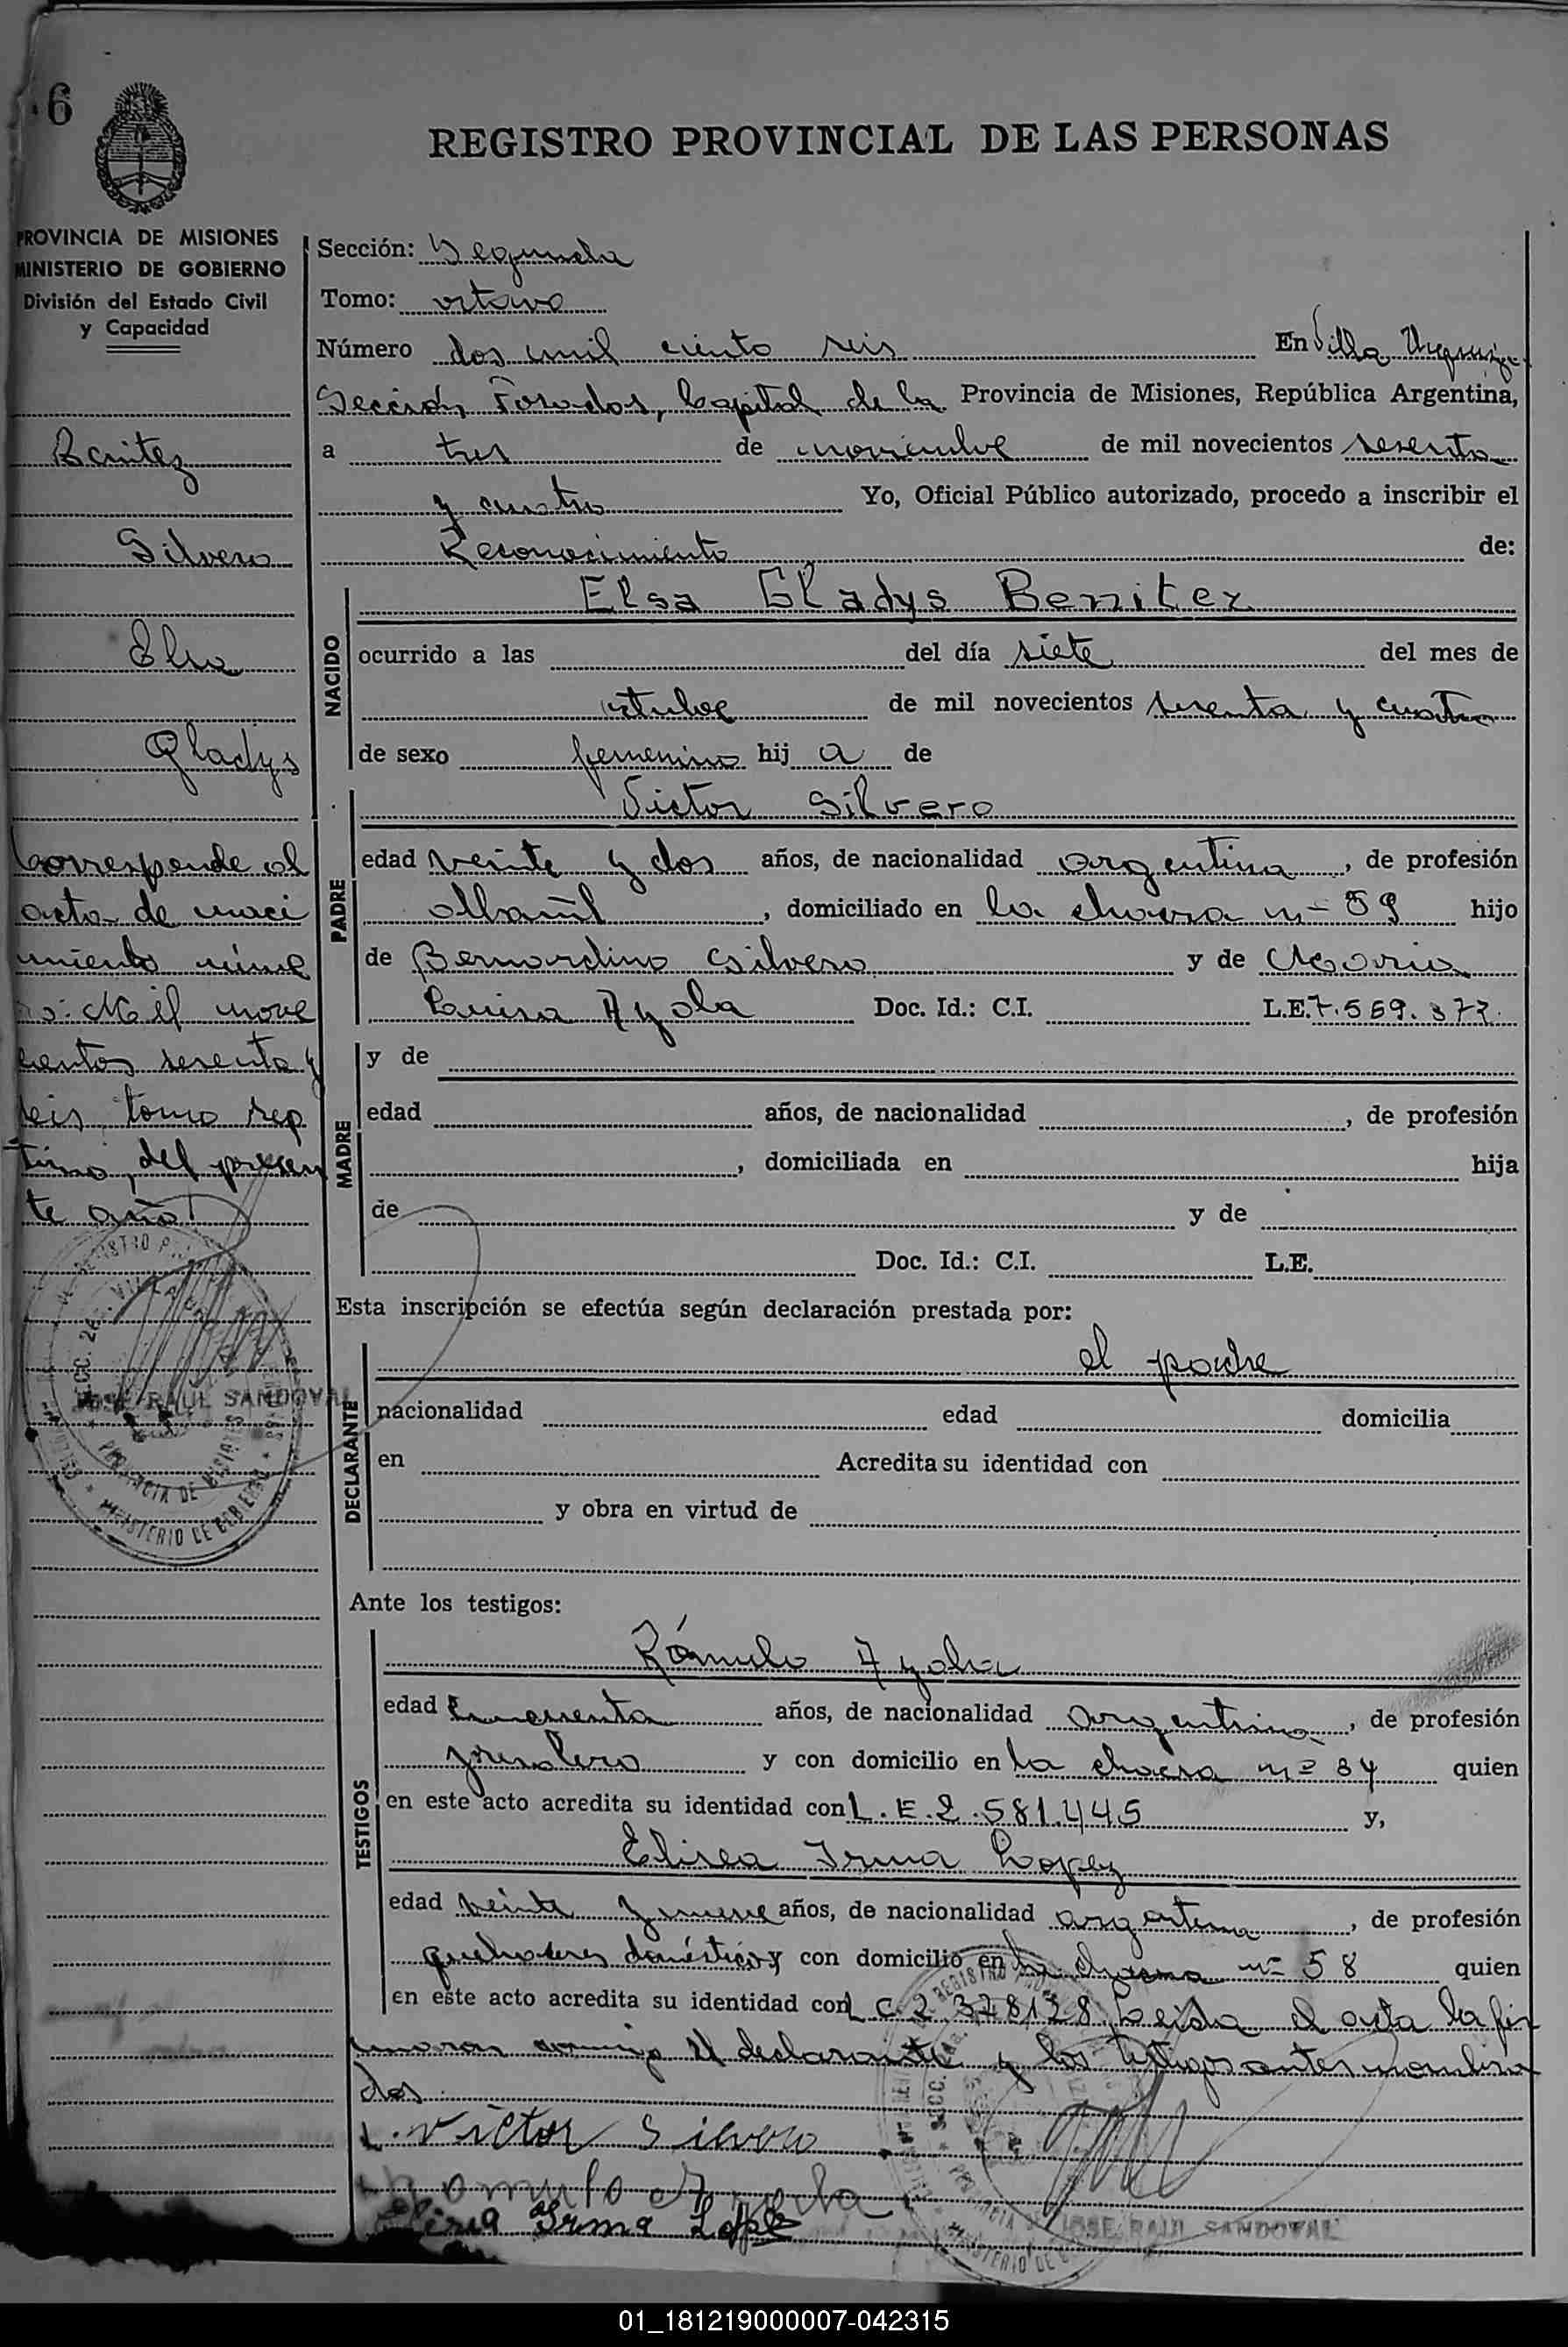 6
REGISTRO PROVINCIAL DE LAS PERSONAS
PROVINCIA DE MISIONES
MINISTERIO DE GOBIERNO
División del Estado Civil
y Capacidad
Benitez
Silvero
Elsa
Gladys
Corresponde al
acta de naci
miento núme
ro: Mil nove
cientos sesenta y
seis, tomo sep
timo, del presen
te año
JOSE RAUL SANDOVAL
Sección: Segunda
Tomo: octavo
Número dos mil ciento seis En Villa Urquiza
Sección Posadas, Capital de la Provincia de Misiones, República Argentina,
a tres de noviembre de mil novecientos sesenta
y cuatro Yo, Oficial Público autorizado, procedo a inscribir el
Reconocimiento de:
NACIDO
Elsa Gladys Benitez
ocurrido a las del día siete del mes de
octubre de mil novecientos sesenta y cuatro
de sexo femenino hij a de
PADRE
Victor Silvero
edad veinte y dos años, de nacionalidad argentina, de profesión
albañil, domiciliado en la chacra nº 59 hijo
de Bernardino Silvero y de Maria
Luisa Ayala Doc. Id.: C.I. L.E. 7.569.377.
MADRE
y de
edad años, de nacionalidad , de profesión
, domiciliada en hija
de y de
Doc. Id.: C.I. L.E.
Esta inscripción se efectúa según declaración prestada por:
DECLARANTE
el padre
nacionalidad edad domicilia
en Acredita su identidad con
y obra en virtud de
Ante los testigos:
TESTIGOS
Rómulo Ayala
edad cincuenta años, de nacionalidad argentino, de profesión
jornalero y con domicilio en la chacra nº 84 quien
en este acto acredita su identidad con L.E.2.581.445 y,
Elisea Irma Lopez
edad veinte y nueve años, de nacionalidad argentina, de profesión
quehaceres domésticos y con domicilio en la chacra nº 58 quien
en este acto acredita su identidad con L C. 2.378128 Leída el acta la fir
maron conmigo el declarante y los testigos antes nombra
dos
Victor Silvero
Romulo Ayala
Irma Lopez
JOSE RAUL SANDOVAL
01_181219000007-042315